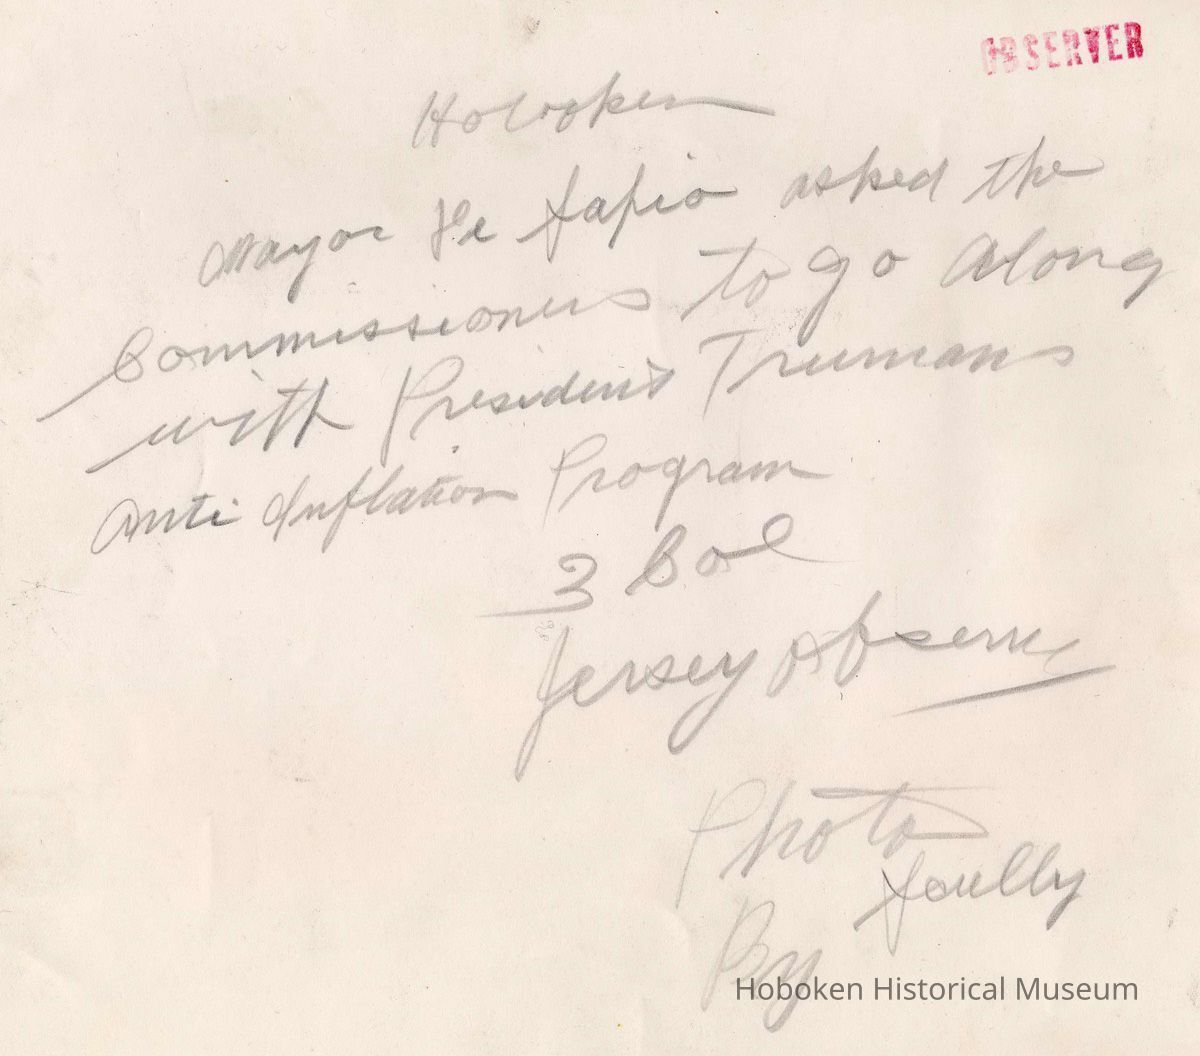 OBSERVER
Hoboken
Mayor De Sapio asked the
Commissioners to go Along
with President Trumans
Anti Inflation Program
3 Col
Jersey Observer
Photo
By
Hoboken Historical Museum